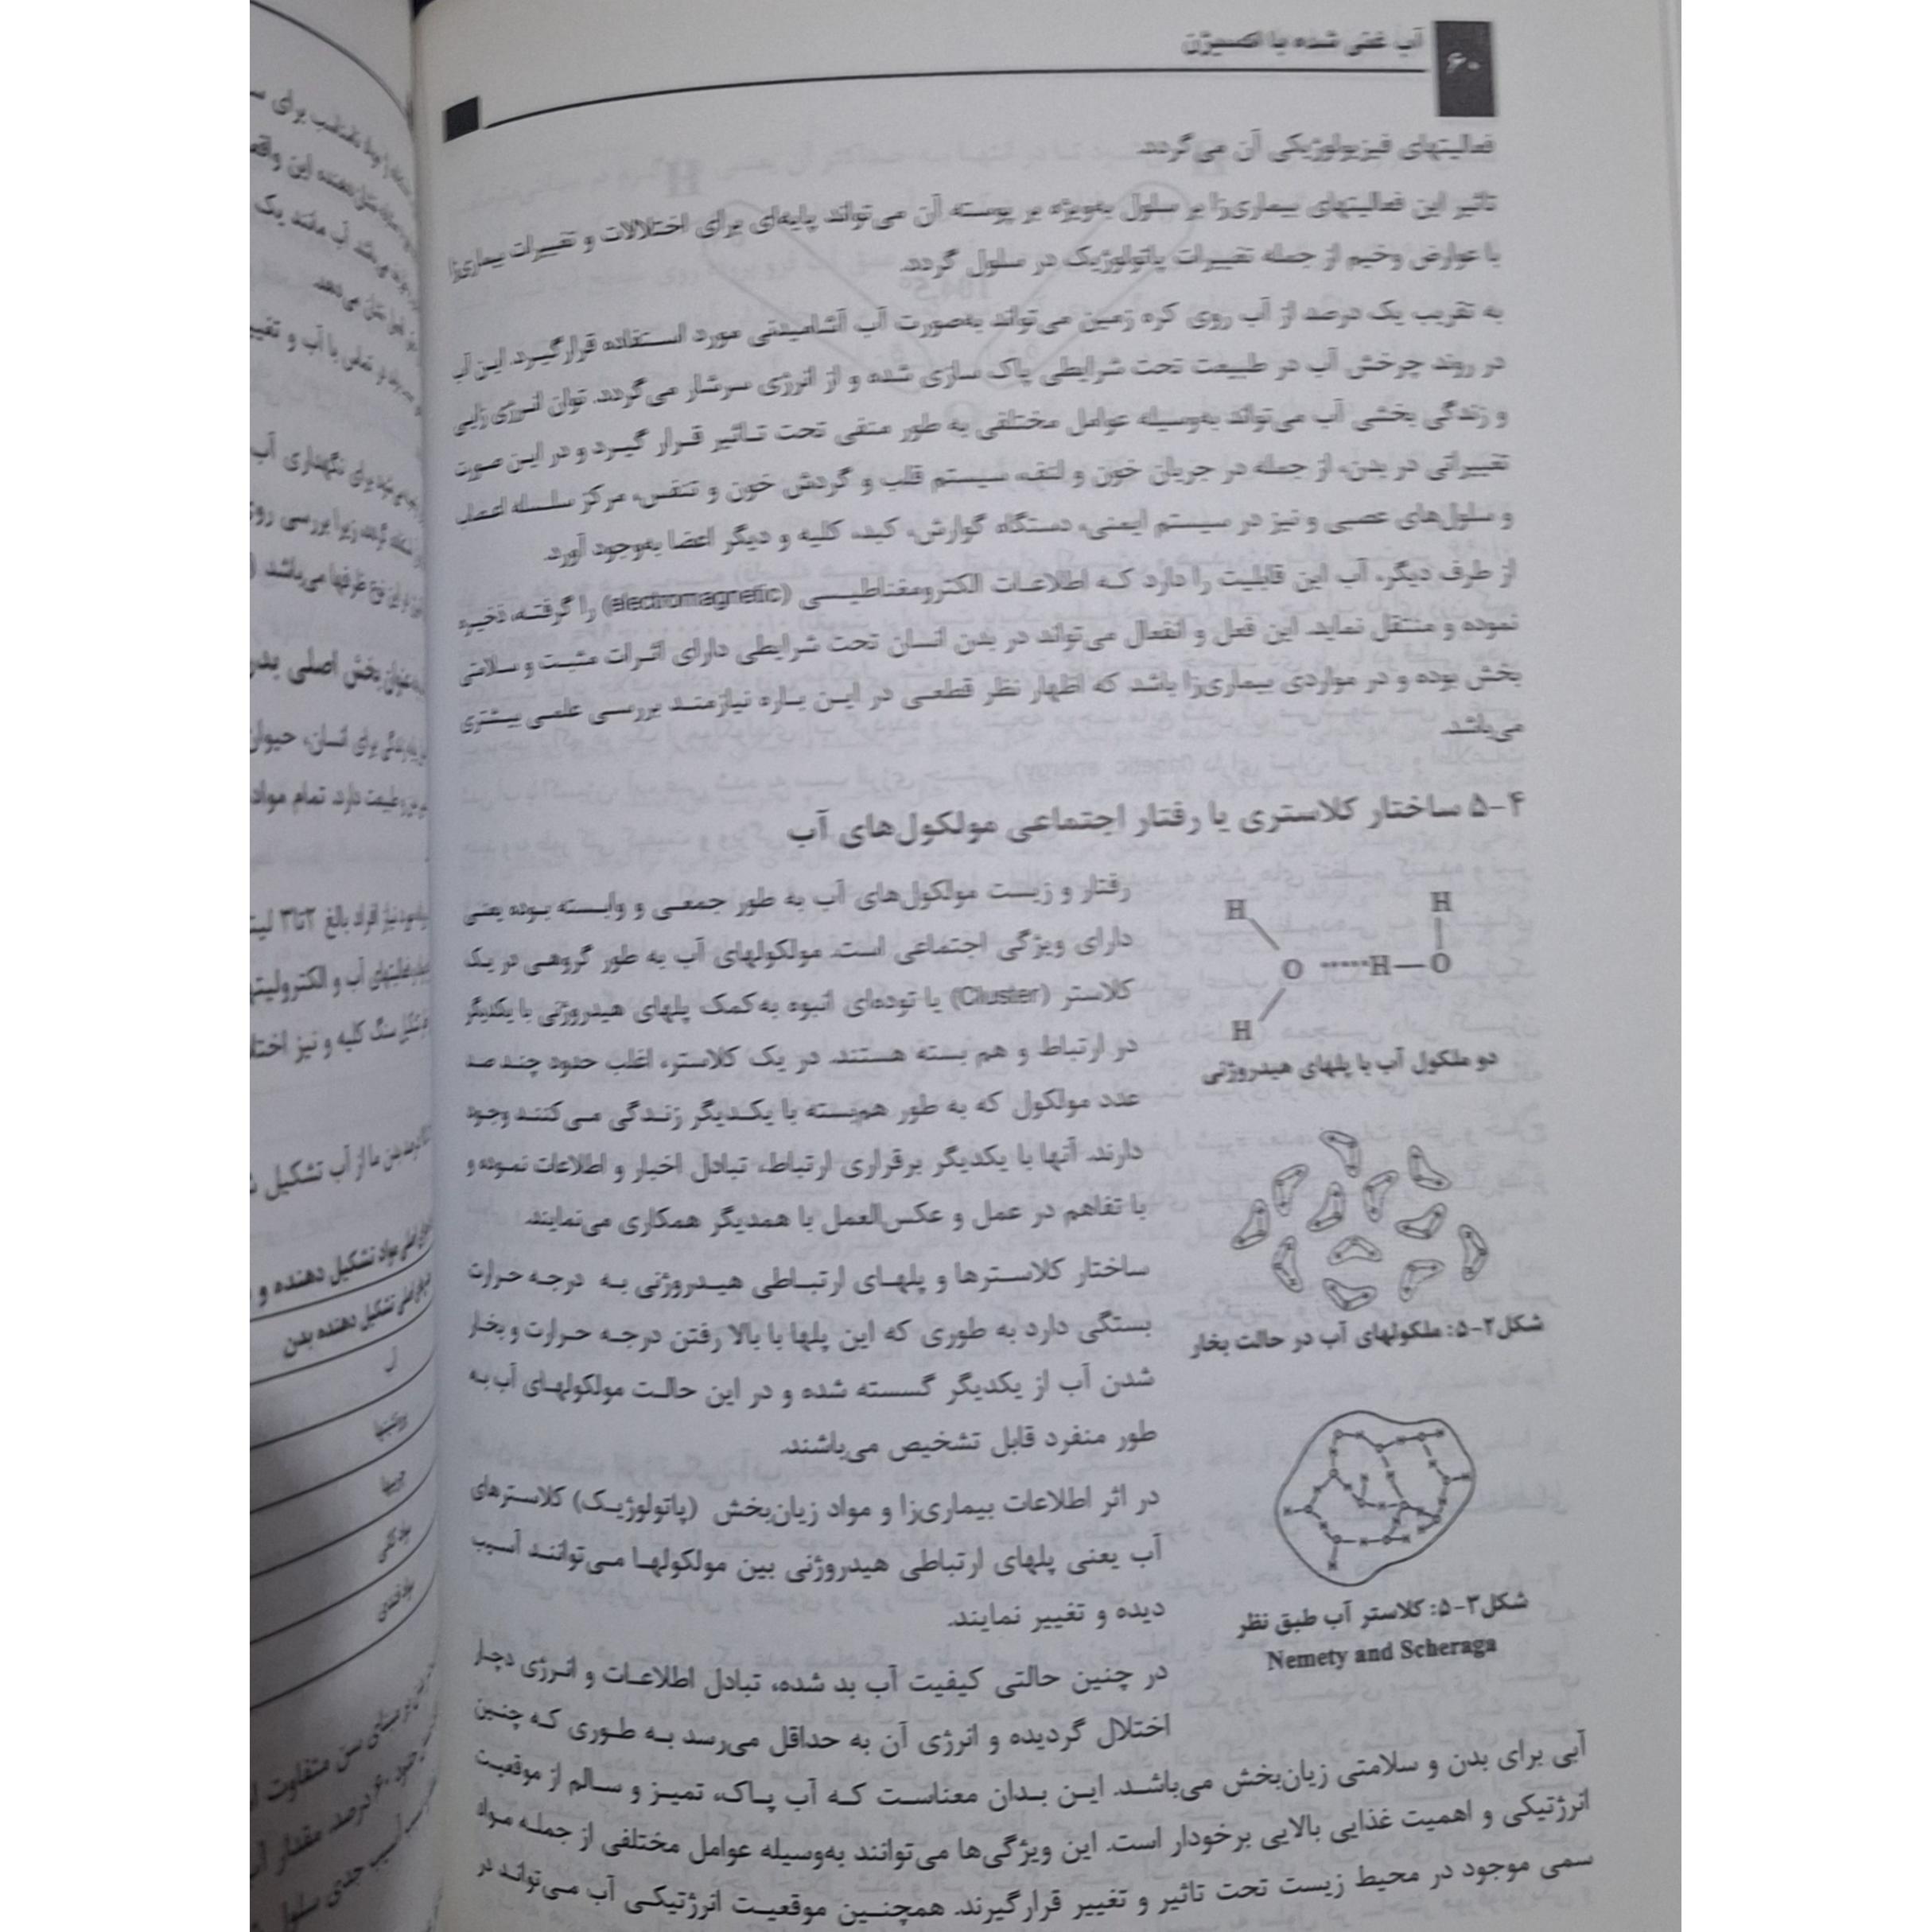 ۶۰
آب غنی شده با اکسیژن
فعالیتهای فیزیولوژیکی آن می‌گردد.
تاثیر این فعالیتهای بیماری‌زا بر سلول به‌ویژه بر پوسته آن می‌تواند پایه‌ای برای اختلالات و تغییرات بیماری‌زا
با عوارض وخیم از جمله تغییرات پاتولوژیک در سلول گردد.
به تقریب یک درصد از آب روی کره زمین می‌تواند به‌صورت آب آشامیدنی مورد استفاده قرار گیرد. این آب
در روند چرخش آب در طبیعت تحت شرایطی پاک سازی شده و از انرژی سرشار می‌گردد. توان انرژی زایی
و زندگی بخشی آب می‌تواند به‌وسیله عوامل مختلفی به طور منفی تحت تاثیر قرار گیرد و در این صورت
تغییراتی در بدن، از جمله در جریان خون و لنف، سیستم قلب و گردش خون و تنفس، مرکز سلسله اعصاب
و سلول‌های عصبی و نیز در سیستم ایمنی، دستگاه گوارش، کبد، کلیه و دیگر اعضا به‌وجود آورد.
از طرف دیگر، آب این قابلیت را دارد که اطلاعات الکترومغناطیسی (electromagnetic) را گرفته، ذخیره
نموده و منتقل نماید. این فعل و انفعال می‌تواند در بدن انسان تحت شرایطی دارای اثرات مثبت و سلامتی
بخش بوده و در مواردی بیماری‌زا باشد که اظهار نظر قطعی در این باره نیازمند بررسی علمی بیشتری
می‌باشد.
۵-۴ ساختار کلاستری یا رفتار اجتماعی مولکول‌های آب
رفتار و زیست مولکول‌های آب به طور جمعی و وابسته بوده یعنی
دارای ویژگی اجتماعی است. مولکولهای آب به طور گروهی در یک
کلاستر (Cluster) یا توده‌ای انبوه به‌کمک پلهای هیدروژنی با یکدیگر
در ارتباط و هم بسته هستند. در یک کلاستر، اغلب حدود چند صد
عدد مولکول که به طور هم‌بسته با یکدیگر زندگی می‌کنند وجود
دارند. آنها با یکدیگر برقراری ارتباط، تبادل اخبار و اطلاعات نموده و
با تفاهم در عمل و عکس‌العمل با همدیگر همکاری می‌نمایند.
ساختار کلاسترها و پلهای ارتباطی هیدروژنی به درجه حرارت
بستگی دارد به طوری که این پلها با بالا رفتن درجه حرارت و بخار
شدن آب از یکدیگر گسسته شده و در این حالت مولکولهای آب به
طور منفرد قابل تشخیص می‌باشند.
در اثر اطلاعات بیماری‌زا و مواد زیان‌بخش (پاتولوژیک) کلاسترهای
آب یعنی پلهای ارتباطی هیدروژنی بین مولکولها می‌توانند آسیب
دیده و تغییر نمایند.
در چنین حالتی کیفیت آب بد شده، تبادل اطلاعات و انرژی دچار
اختلال گردیده و انرژی آن به حداقل می‌رسد به طوری که چنین
آبی برای بدن و سلامتی زیان‌بخش می‌باشد. این بدان معناست که آب پاک، تمیز و سالم از موقعیت
انرژتیکی و اهمیت غذایی بالایی برخوردار است. این ویژگی‌ها می‌توانند به‌وسیله عوامل مختلفی از جمله مواد
سمی موجود در محیط زیست تحت تاثیر و تغییر قرار گیرند. همچنین موقعیت انرژتیکی آب می‌تواند در
H H
O ·····H—O
H
دو ملکول آب با پلهای هیدروژنی
شکل۲-۵: ملکولهای آب در حالت بخار
شکل۳-۵: کلاستر آب طبق نظر
Nemety and Scheraga